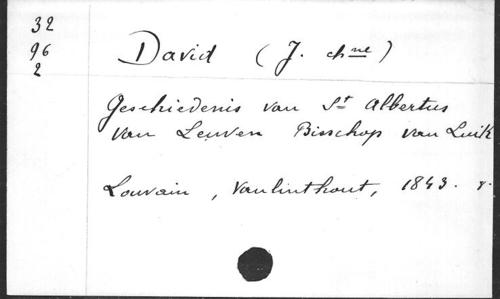 32
96
2
David (J. chne)
Geschiedenis van St Albertus
van Leuven Bisschop van Luik
Louvain, Vanlinthout, 1843.